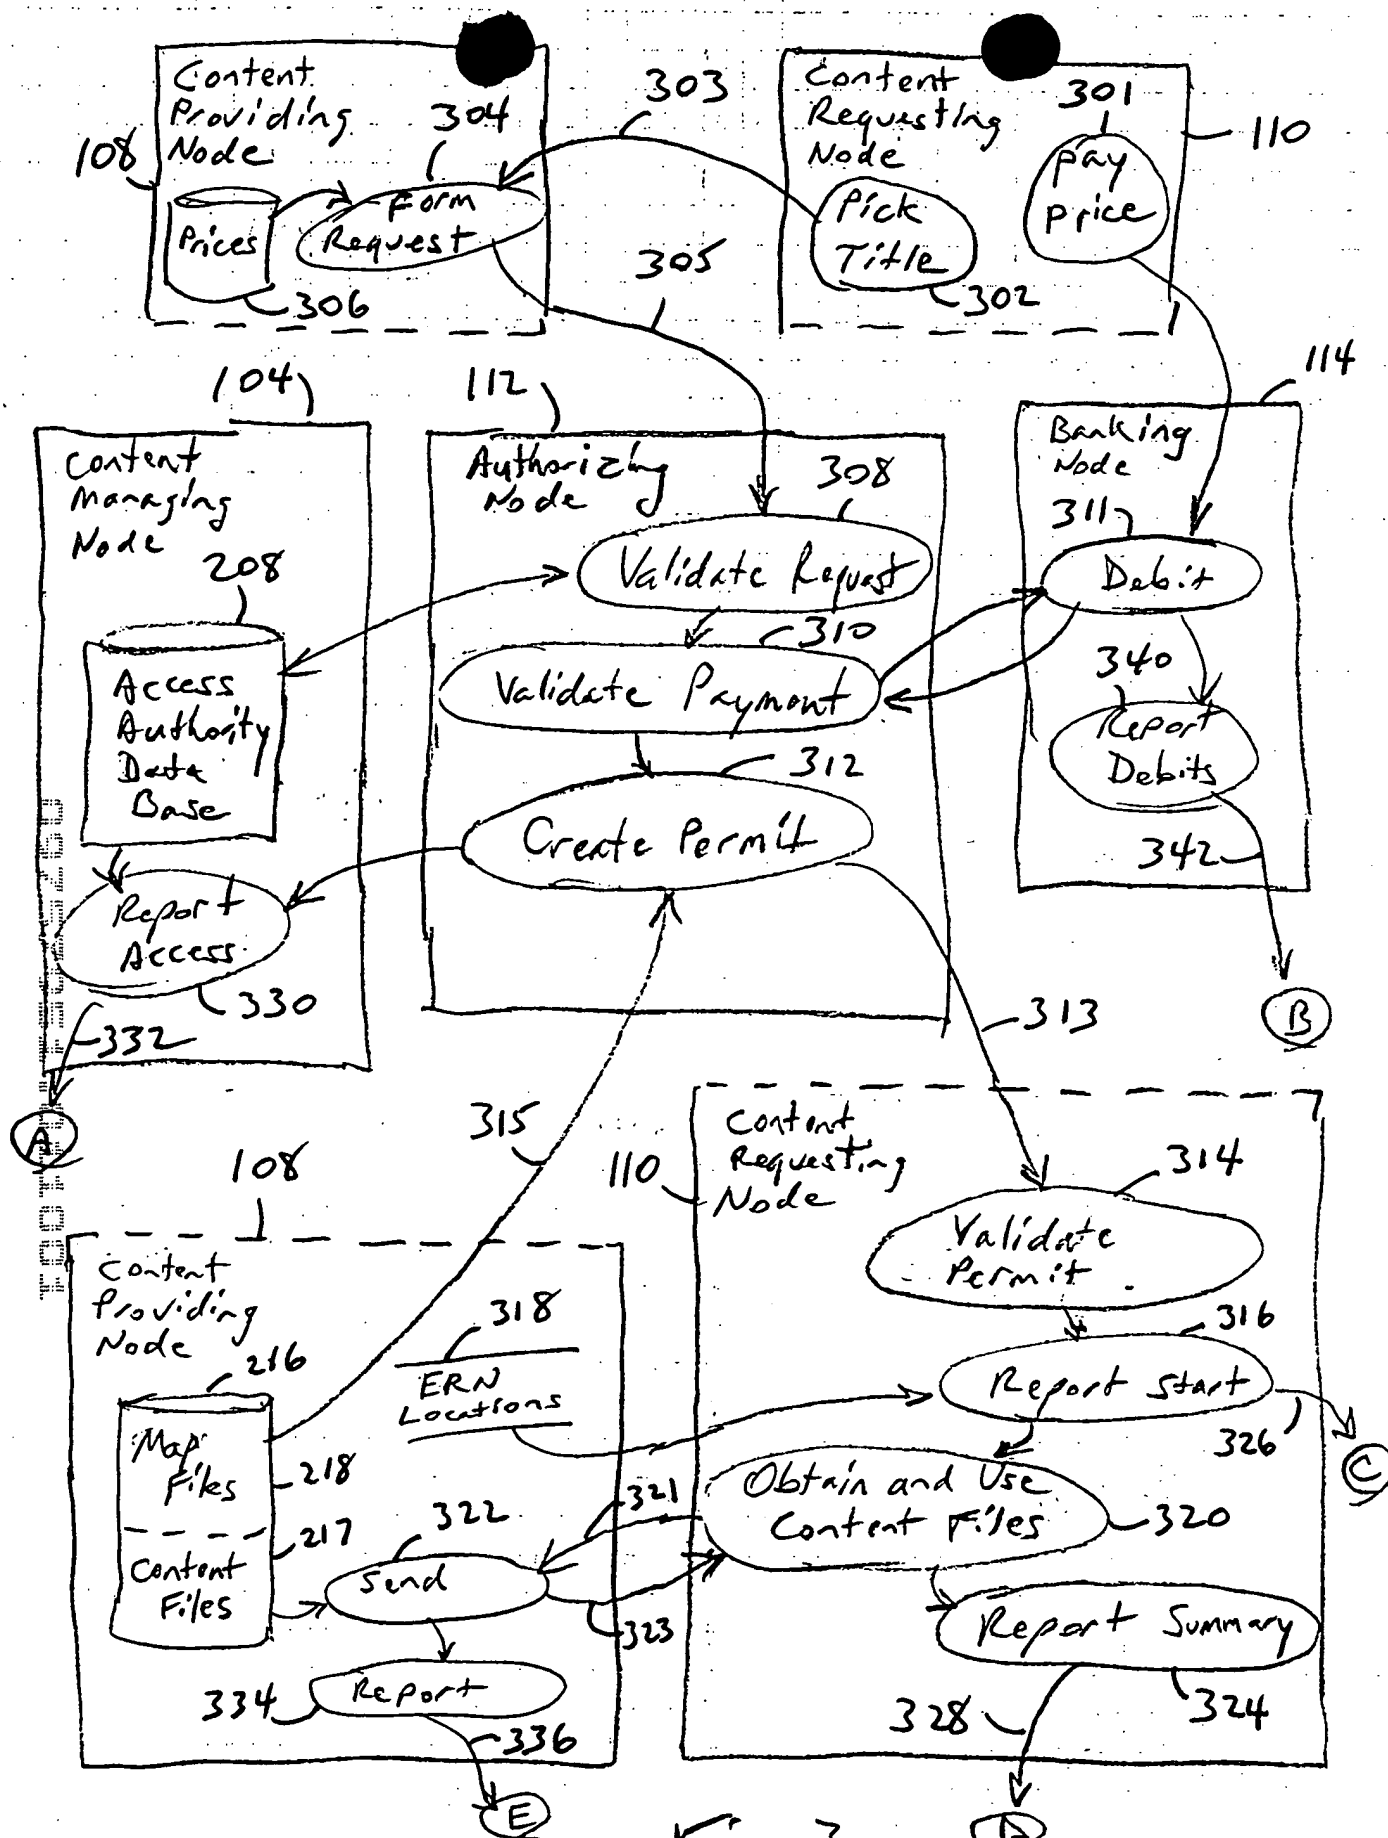 Content
Providing
Node
304
108
Prices
Form
Request
306
303
305
Content
Requesting
Node
301
110
Pay
Price
Pick
Title
302
104
112
114
Content
Managing
Node
208
Access
Authority
Data
Base
Report
Access
330
332
A
Authorizing
Node
308
Validate Request
310
Validate Payment
312
Create Permit
Banking
Node
311
Debit
340
Report
Debits
342
B
313
315
108
Content
Providing
Node
216
Map
Files
218
217
Content
Files
318
ERN
Locations
322
Send
321
323
334
Report
336
E
110
Content
Requesting
Node
314
Validate
Permit
316
Report Start
326
C
Obtain and Use
Content Files
320
Report Summary
324
328